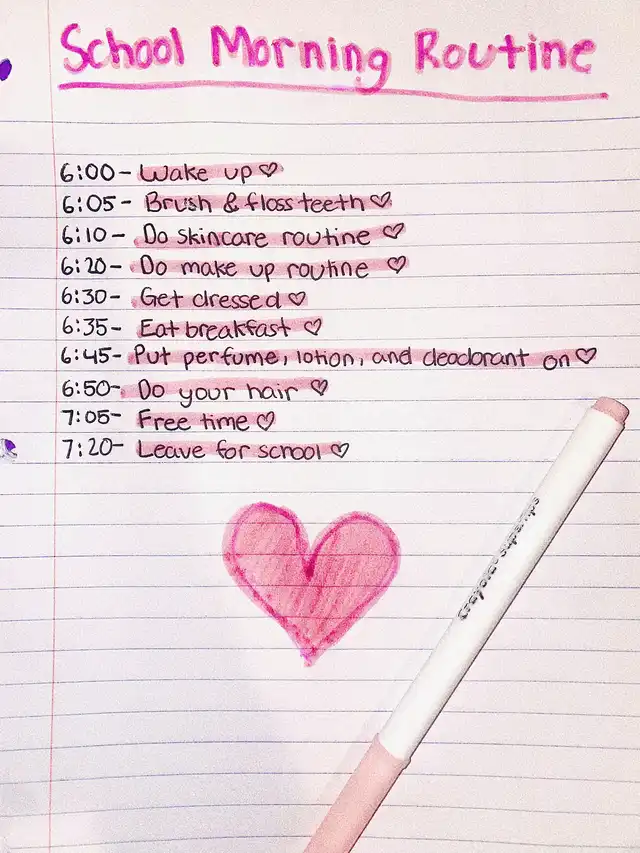 School Morning Routine
6:00- Wake up ♡
6:05- Brush & floss teeth ♡
6:10- Do skincare routine ♡
6:20- Do make up routine ♡
6:30- Get dressed ♡
6:35- Eat breakfast ♡
6:45- Put perfume, lotion, and deodorant on ♡
6:50- Do your hair ♡
7:05- Free time ♡
7:20- Leave for school ♡
Crayola Supertips